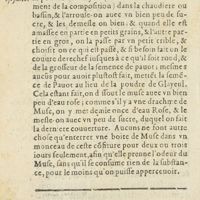 ment de la composition) dans la chaudiere ou
bassin, & l'arrouse-on auec vn bien peu de su-
cre, & les demesle on bien: & quand elle est
amassee en partie en petits grains, & l'autre par-
tie en gros, on la passe par vn petit crible, &
choisit-on ce qui est passé, & si besoin fait on le
courre derechef iusques à ce qu'il soit rond, &
de la grosseur de la semence de pauot: mesme si
aucūs pour auoir plustost fait, mettēt la semē-
ce de Pauot au lieu de la poudre de Glayeul.
Cela estant fait, on dissout le musc auec vn bien
peu d'eau rose; comme s'il y a vne drachme de
Musc, on y met demie once d'eau Rose, & le
mesle-on auec vn peu de sucre, duquel on fait
la derniere couuerture. Aucuns ne font autre
chose qu'enterrer vne boite de Musc dans vn
monceau de ceste cōfiture pour deux ou trois
iours seulement, afin qu'elle prenne l'odeur du
Musc, sans qu'il se consume rien de la substan-
ce, pour le moins qu'on puisse apperceuoir.